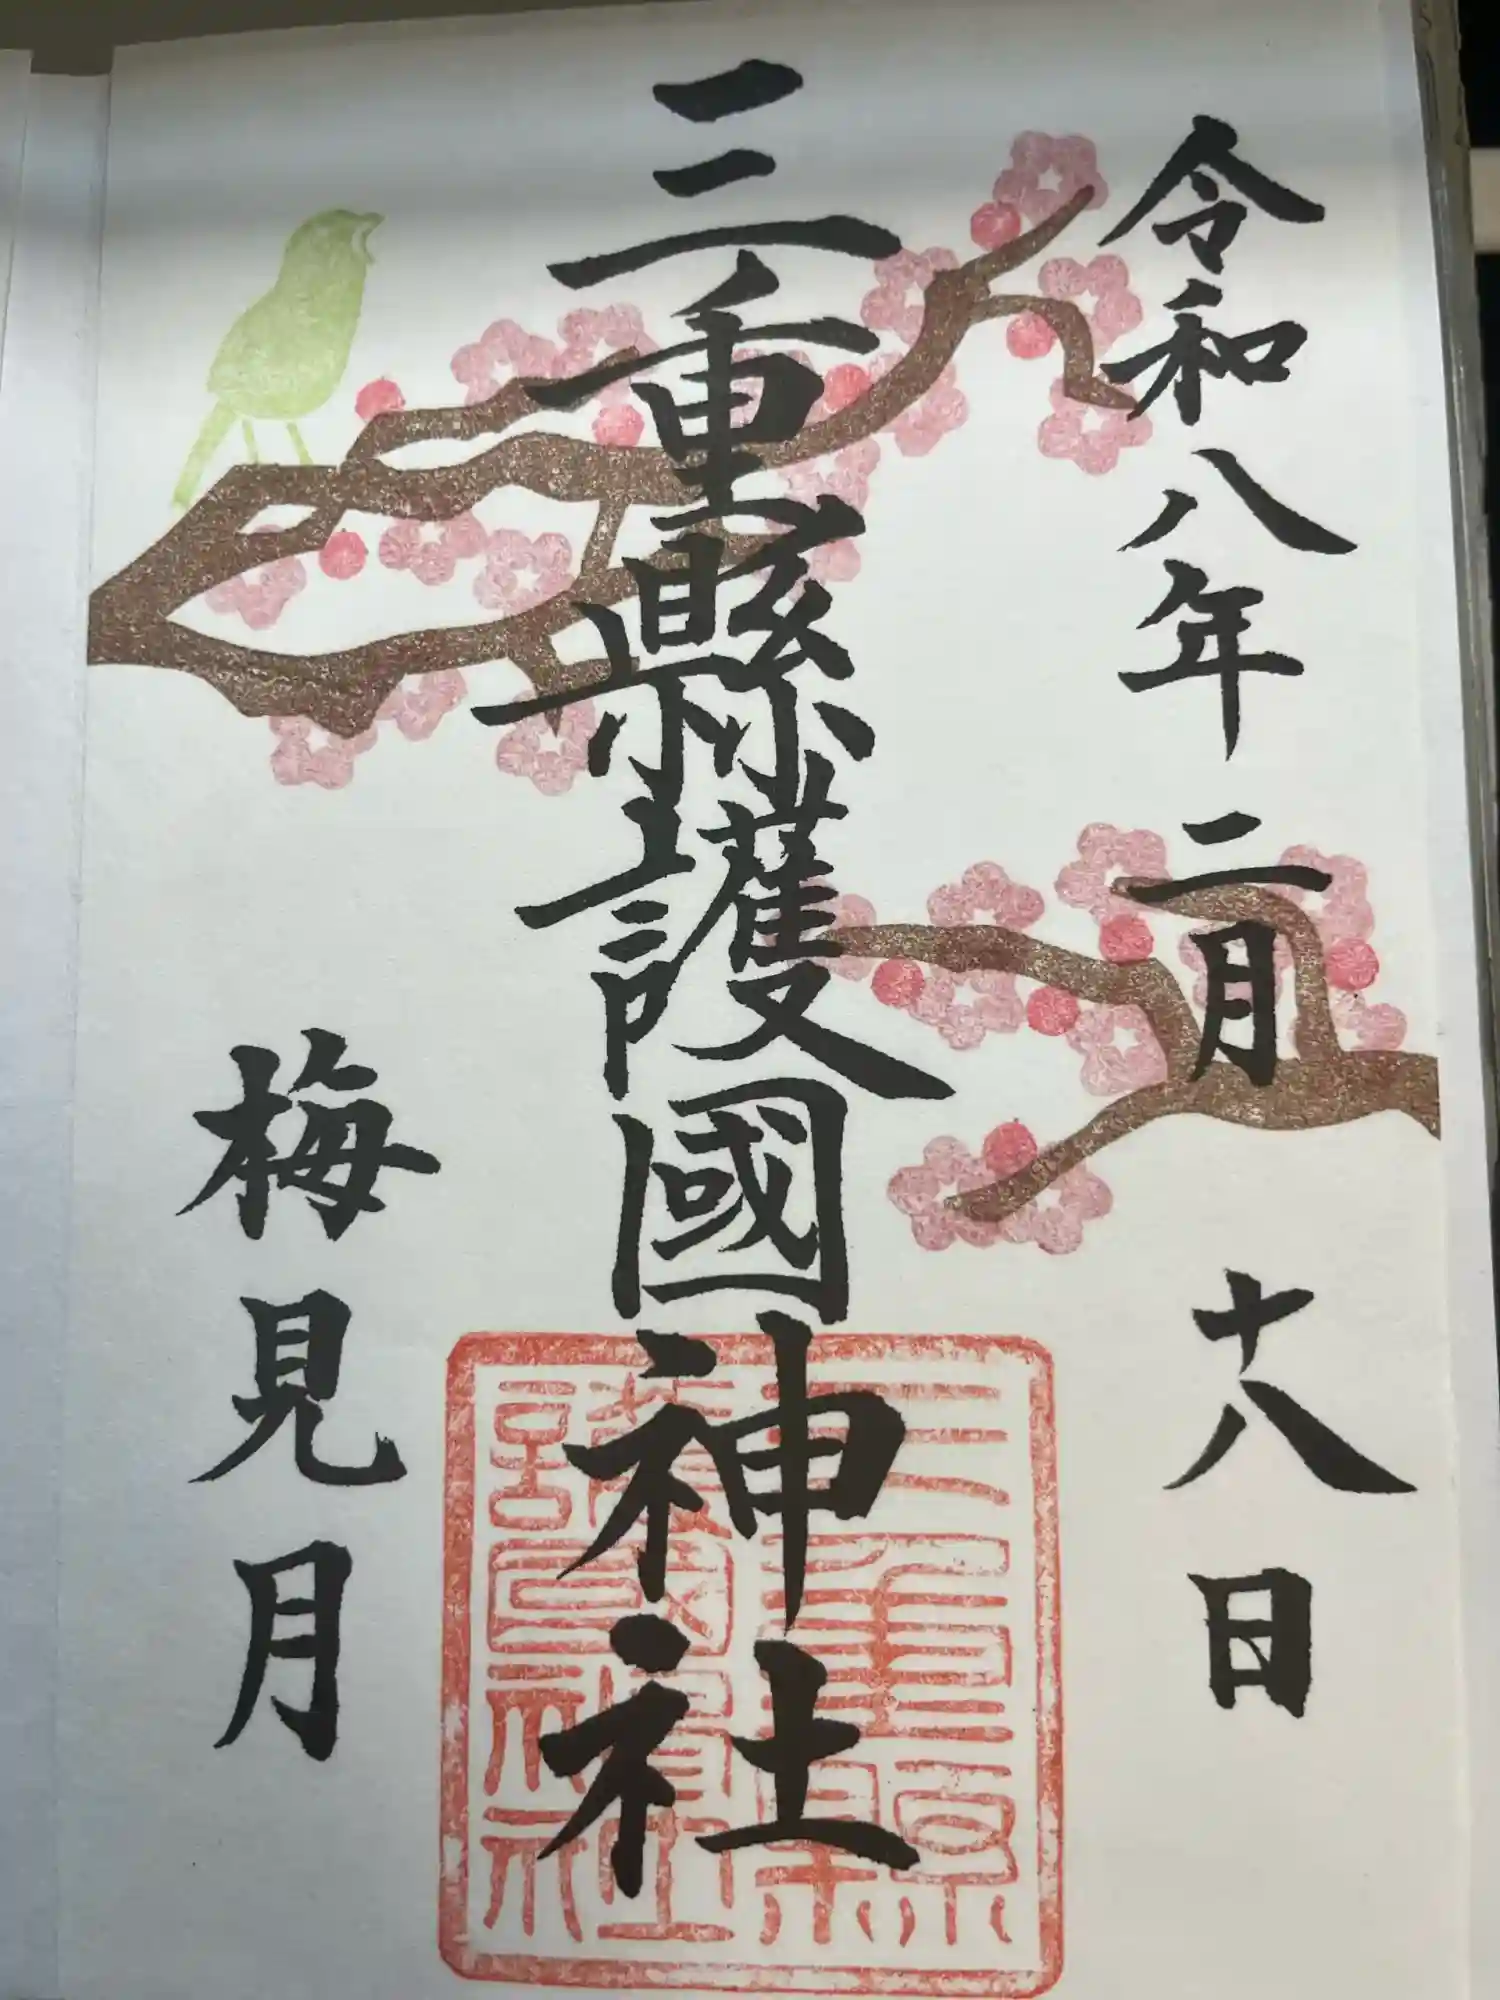 令和八年二月十八日
三重縣護國神社
梅見月
三重縣
護國神社